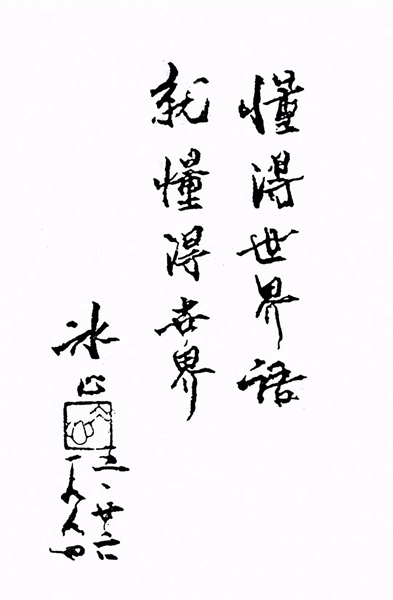 懂得世界语
就懂得世界
冰心
五、廿六
一九八四